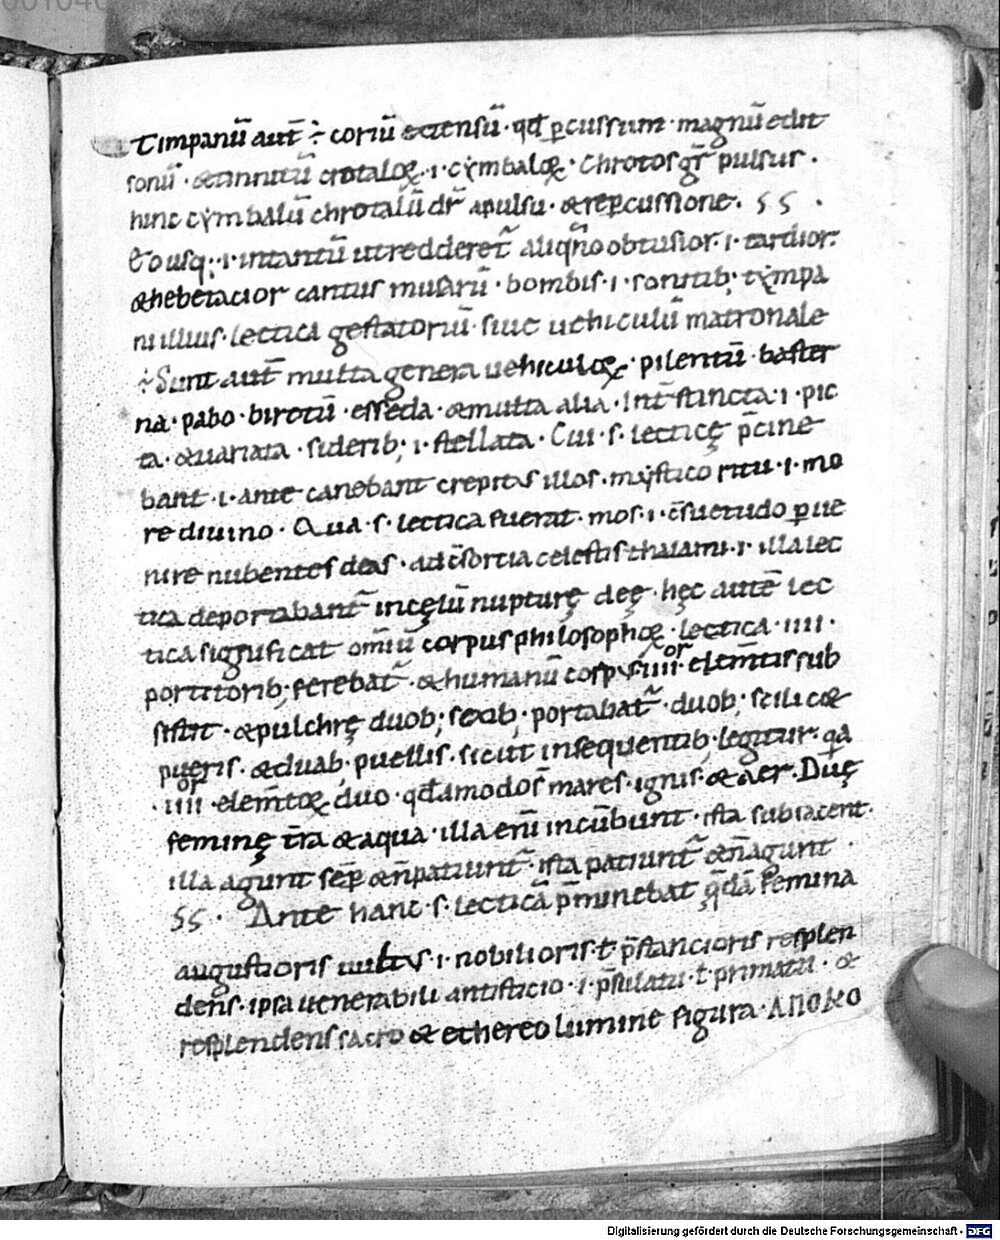 Timpanũ aut̃ ÷ coriũ extensũ · qđ ꝑcussum · magnũ edit
sonũ · & tinnitũ crotaloꝝ · i · cẏmbaloꝝ · Chrotos gr̃ pulsus ·
hinc cẏmbalũ chrotalũ dr̃ apulsu · & reꝑcussione · ss ·
Eousq; · i · intantũ ut redderet̃ aliqñ obtusior · i · tardior ·
& hebetacior cantus musarũ · bombis · i · sonitib; tẏmpa
ni illius · lectica gestatoriũ · siue uehiculũ matronale
÷ Sunt aut̃ multa genera uehiculoꝝ · pilentũ · baster
na · pabo · birotũ · esseda · & multa alia · Int̃stincta · i · pic
ta · & uariata · siderib; · i · stellata · Cui · s · lecticę p̃cine
bant · i · ante canebant crepitus illos · mẏstico ritu · i · mo
re diuino · Qua · s · lectica fuerat · mos · i · c̃suetudo ꝑue
nire nubentes deas · ad c̃sortia celestis thalami · i · illa lec
tica deportabant̃ in cęlũ nupturę deę · hęc autẽ lec
tica significat om̃iũ corpus philosophoꝝ · lectica · iiii ·
portitorib; ferebat̃ · & humanũ corpus iiii or elem̃tis sub
sistit · & pulchrę duob; sexib; portabat̃ · duob; scilicet
pueris · & duab; puellis · sicut insequentib; legitur · qa
· iiii or elem̃toꝝ duo · qđamodo s̃ mares · ignis & aer · Duę
feminę t̃ra & aqua · illa eñi incũbunt · ista subiacent ·
illa agunt sẽꝑ & ñ patiunt̃ · ista patiunt̃ & ñ agunt ·
ss · Ante hanc · s · lecticã p̃minebat q̃dã femina
augustioris uultus · i · nobilioris · ł · p̃stancioris resplen
dens · ipsa uenerabili antisticio · i · p̃sulatu · ł · primatu · &
resplendens sacro & ethereo lumine figura · ANOKO
Digitalisierung gefördert durch die Deutsche Forschungsgemeinschaft - DFG